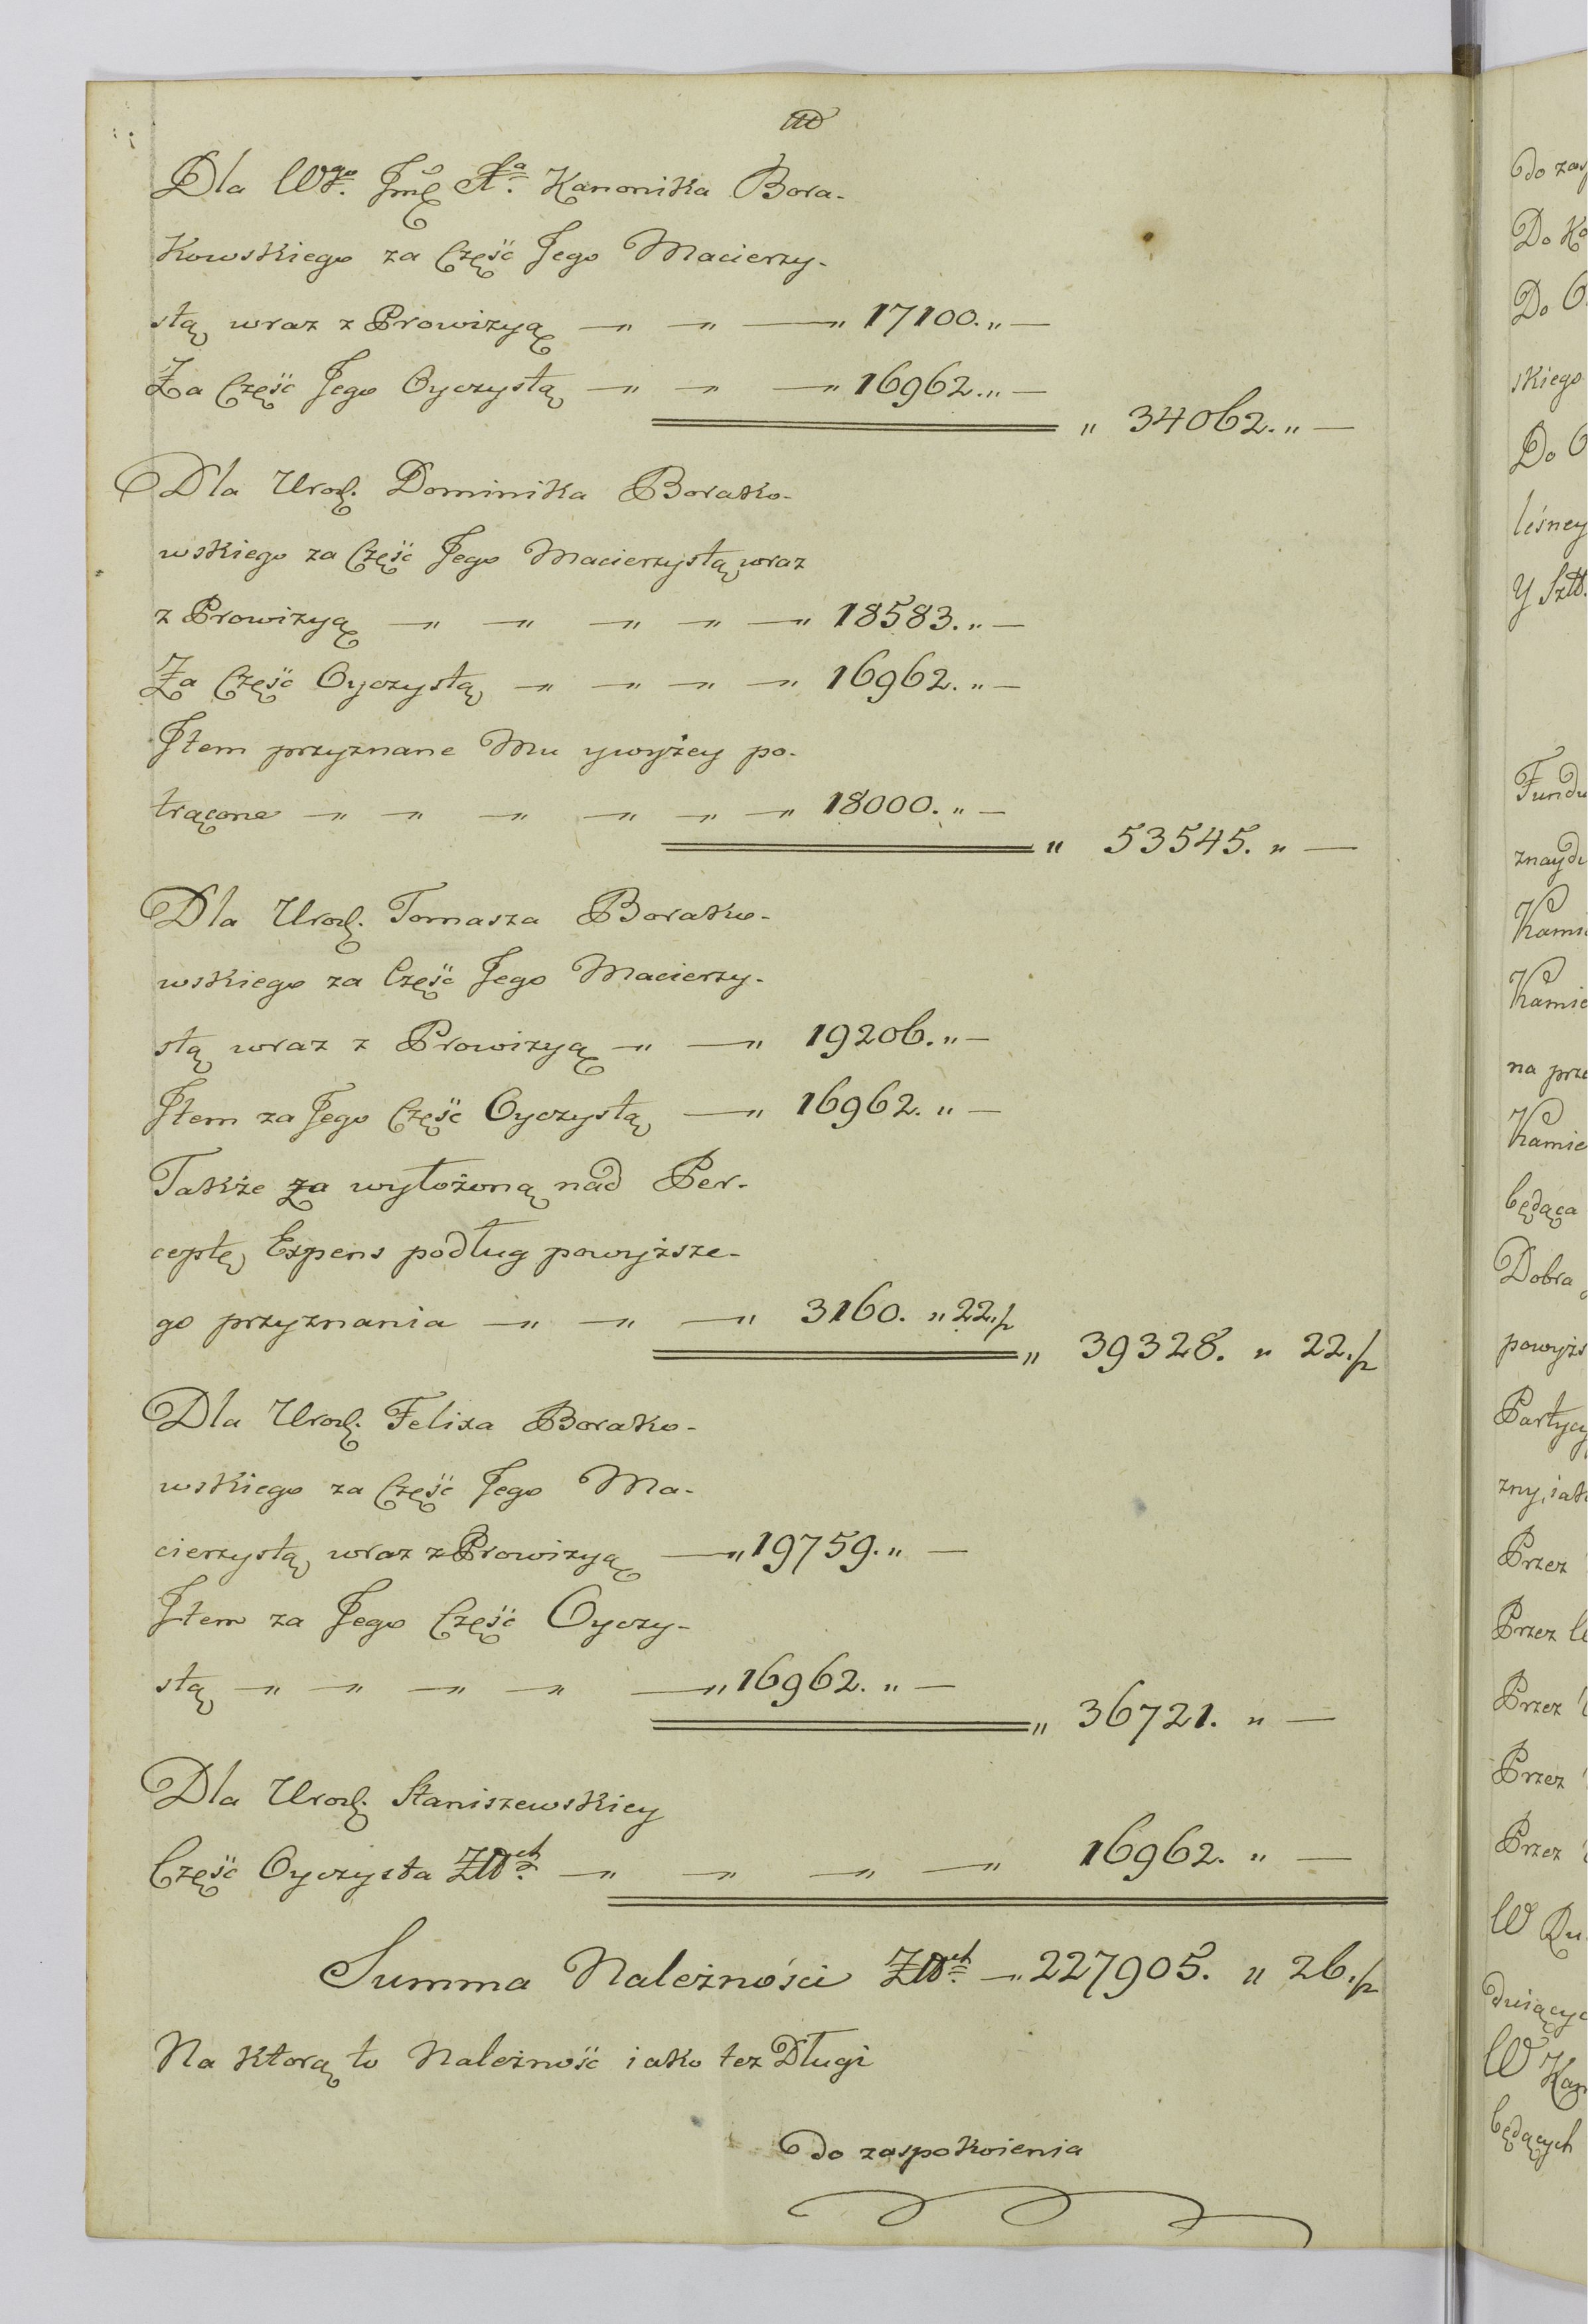 Dla Wgo. Jmć Xa. Kanonika Bora-
kowskiego za Część Jego Macierzy-
stą wraz z Prowizyą —„ —„ —„ 17100.„—
Za Część Jego Oyczystą —„ —„ —„ 16962.„—
„ 34062.„—
Dla Urodz. Dominika Borako-
wskiego za Część Jego Macierzystą wraz
z Prowizyą —„ —„ —„ —„ —„ 18583.„—
Za Część Oyczystą —„ —„ —„ —„ 16962.„—
Item przyznane Mu ywyżey po-
trącone —„ —„ —„ —„ —„ —„ 18000.„—
„ 53545.„—
Dla Urodz. Tomasza Borako-
wskiego za Część Jego Macierzy-
stą wraz z Prowizyą —„ —„ 19206.„—
Item za Jego Część Oyczystą —„ 16962.„—
Także za wyłożoną nad Per-
ceptę Expens podług powyższe-
go przyznania —„ —„ —„ 3160.„22.p
„ 39328.„ 22.p
Dla Urodz. Felixa Borako-
wskiego za Część Jego Ma-
cierzystą wraz z Prowizyą —„ 19759.„—
Item za Jego Część Oyczy-
stą —„ —„ —„ —„ —„ 16962.„—
„ 36721.„—
Dla Urodz. Staniszewskiey
Część Oyczysta Złłch. —„ —„ —„ —„ 16962.„—
Summa Należności Złłch. —„ 227905.„ 26.p
Na ktorą to Należność iako tez Długi
do zaspokoienia
Do
Do
skiego
Do
leśney
Y
na
będąca
Dobra
Przez
Przez
Przez
Przez
Przez
W
W
będących